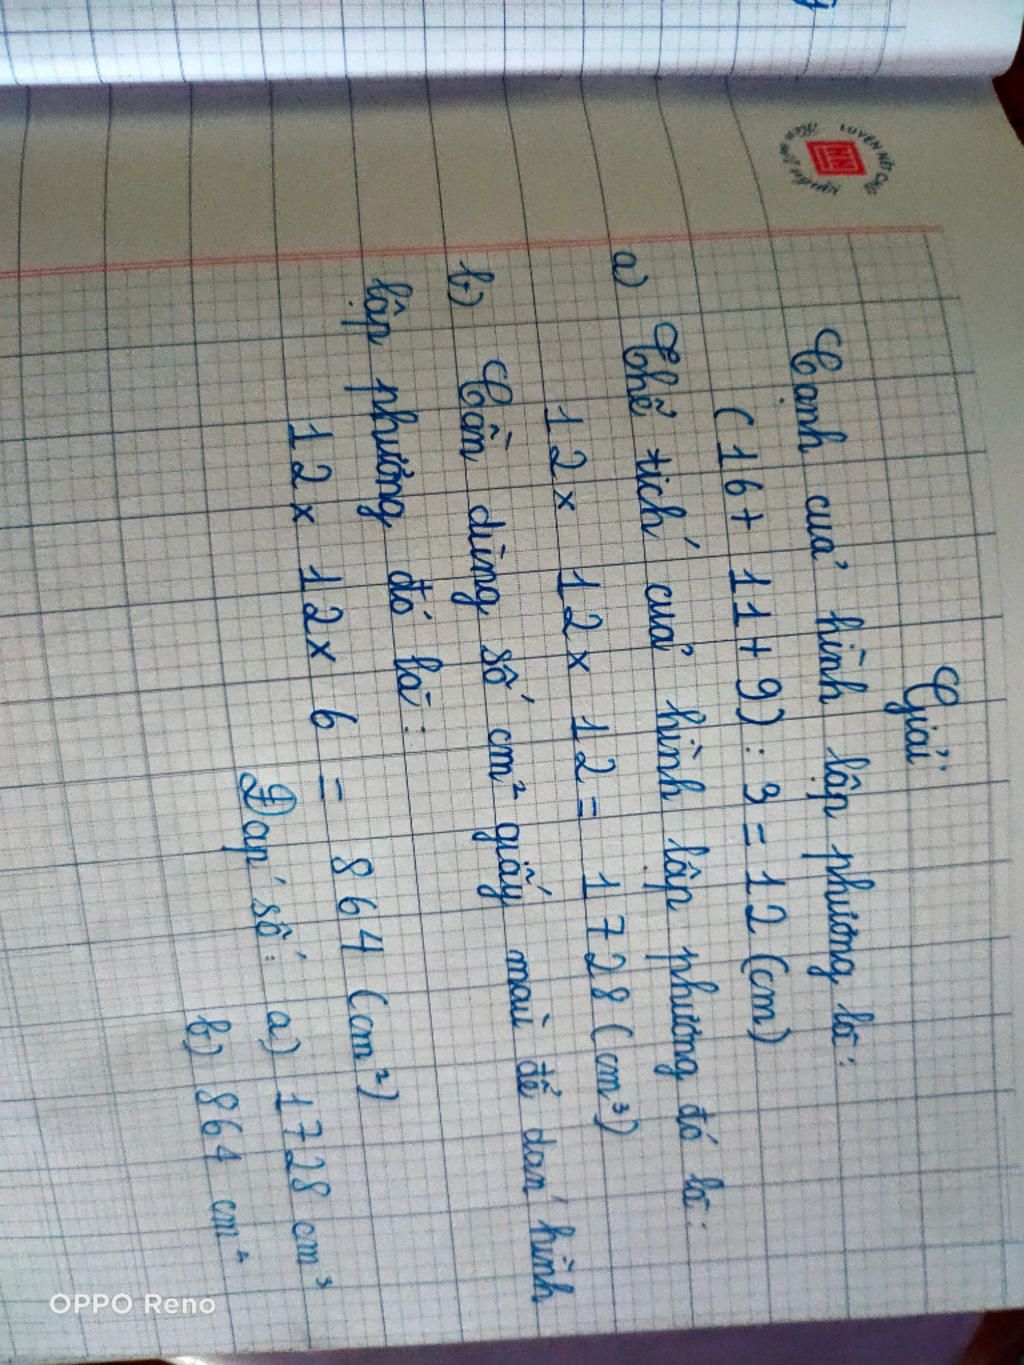 LUYỆN NÉT CHỮ
HN
Rèn nết người
Giải:
Cạnh của hình lập phương là:
(16 + 11 + 9) : 3 = 12 (cm)
a) Thể tích của hình lập phương đó là:
12 x 12 x 12 = 1728 (cm³)
b) Cần dùng số cm² giấy màu để dán hình
lập phương đó là:
12 x 12 x 6 = 864 (cm²)
Đáp số: a) 1728 cm³
b) 864 cm²
OPPO Reno